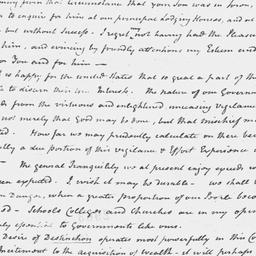 ing from that circumstance that your Son was in town,
to enquire for him at our principal Lodging Houses, and ot
but without Success. I regret not having had the Pleasure
him, and evincing by friendly attentions my Esteem and
or You and for him —
t is happy for the united States that so great a part of th
to discern their true Interest. The nature of our Governmen
from the virtuous and enlightned unceasing vigilance
not merely that Good may be done, but that mischief m
ted. How far we may prudently calculate on there bei
lly a due portion of this vigilance & Effort Experience
— The general Tranquility we at present enjoy exceeds w
een expected. I wish it may be durable — we shall
n Danger, when a greater proportion of our People becom
od — Schools Colleges and Churches are in my opin
ely essential to Governments like ours.
Desire of Distinction operates most powerfully in this Co
Incitement to the acquisition of wealth — it will perhaps